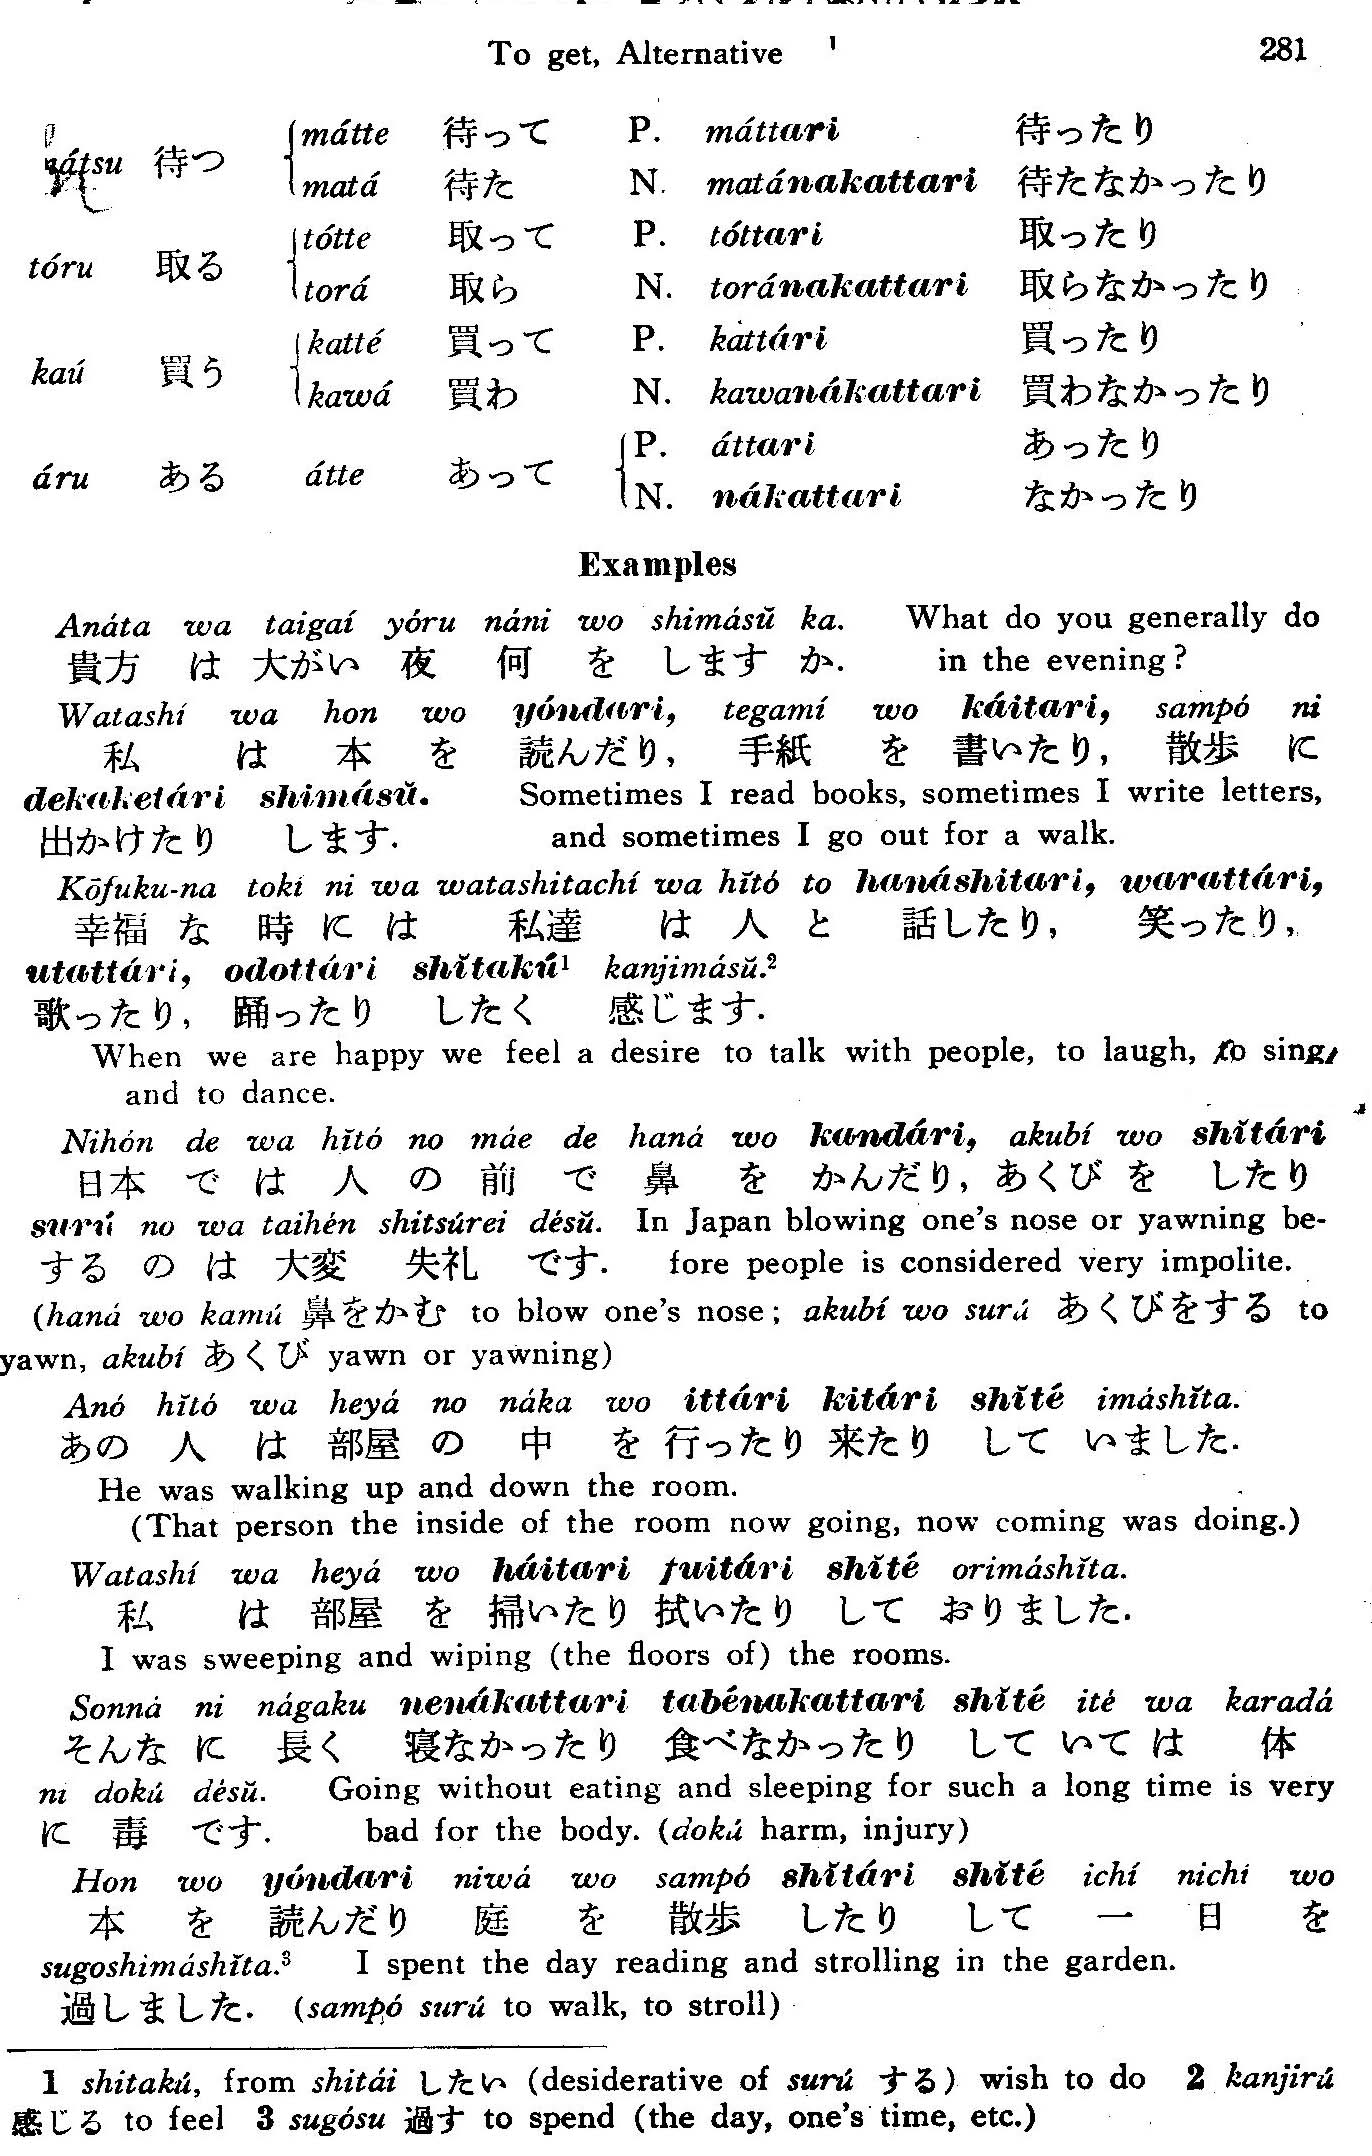 To get, Alternative 281
mátte 待って P. máttari 待ったり
mátsu 待つ
matá 待た N. matánakattari 待たなかったり
tótte 取って P. tóttari 取ったり
tóru 取る
torá 取ら N. toránakattari 取らなかったり
katté 買って P. kattári 買ったり
kaú 買う
kawá 買わ N. kawanákattari 買わなかったり
P. áttari あったり
áru ある átte あって
N. nákattari なかったり
Examples
Anáta wa taigaí yóru náni wo shimásŭ ka. What do you generally do
貴方 は 大がい 夜 何 を します か. in the evening?
Watashí wa hon wo yóndari, tegamí wo káitari, sampó ni
私 は 本 を 読んだり, 手紙 を 書いたり, 散歩 に
dekaketári shimásŭ. Sometimes I read books, sometimes I write letters,
出かけたり します. and sometimes I go out for a walk.
Kōfuku-na tokí ni wa watashitachí wa hĭtó to hanáshitari, warattári,
幸福 な 時 に は 私達 は 人 と 話したり, 笑ったり,
utattári, odottári shĭtakú¹ kanjimásŭ.²
歌ったり, 踊ったり したく 感じます.
When we are happy we feel a desire to talk with people, to laugh, to sing,
and to dance.
Nihón de wa hĭtó no máe de haná wo kandári, akubí wo shĭtári
日本 で は 人 の 前 で 鼻 を かんだり, あくび を したり
surú no wa taihén shitsúrei désŭ. In Japan blowing one's nose or yawning be-
する の は 大変 失礼 です. fore people is considered very impolite.
(haná wo kamú 鼻をかむ to blow one's nose; akubí wo surú あくびをする to
yawn, akubí あくび yawn or yawning)
Anó hĭtó wa heyá no náka wo ittári kitári shĭté imáshĭta.
あの 人 は 部屋 の 中 を 行ったり 来たり して いました.
He was walking up and down the room.
(That person the inside of the room now going, now coming was doing.)
Watashí wa heyá wo háitari fuitári shĭté orimáshĭta.
私 は 部屋 を 掃いたり 拭いたり して おりました.
I was sweeping and wiping (the floors of) the rooms.
Sonná ni nágaku nenákattari tabénakattari shĭté ité wa karadá
そんな に 長く 寝なかったり 食べなかったり して いて は 体
ni dokú désŭ. Going without eating and sleeping for such a long time is very
に 毒 です. bad for the body. (dokú harm, injury)
Hon wo yóndari niwá wo sampó shĭtári shĭté ichí nichí wo
本 を 読んだり 庭 を 散歩 したり して 一 日 を
sugoshimáshĭta.³ I spent the day reading and strolling in the garden.
過しました. (sampó surú to walk, to stroll)
1 shitakú, from shitái したい (desiderative of surú する) wish to do 2 kanjirú
感じる to feel 3 sugósu 過す to spend (the day, one's time, etc.)